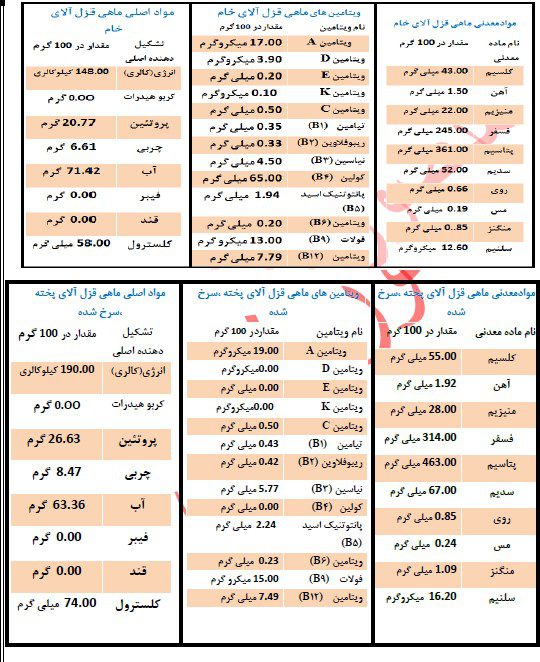 موادمعدنی ماهی قزل آلای خام
نام ماده معدنی مقدار در 100 گرم
کلسیم 43.00 میلی گرم
آهن 1.50 میلی گرم
منیزیم 22.00 میلی گرم
فسفر 245.00 میلی گرم
پتاسیم 361.00 میلی گرم
سدیم 52.00 میلی گرم
روی 0.66 میلی گرم
مس 0.19 میلی گرم
منگنز 0..85 میلی گرم
سلنیم 12.60 میکروگرم
ویتامین های ماهی قزل آلای خام
نام ویتامین مقدار در 100 گرم
ویتامین A 17.00 میکروگرم
ویتامین D 3.90 میکروگرم
ویتامین E 0.20 میلی گرم
ویتامین K 0.10 میکروگرم
ویتامین C 0.50 میلی گرم
تیامین (B۱) 0.35 میلی گرم
ریبوفلاوین (B۲) 0.33 میلی گرم
نیاسین (B۳) 4.50 میلی گرم
کولین (B۴) 65.00 میلی گرم
پانتوتنیک اسید (B۵) 1.94 میلی گرم
ویتامین (B۶) 0.20 میلی گرم
فولات (B۹) 13.00 میکروگرم
ویتامین (B۱۲) 7.79 میلی گرم
مواد اصلی ماهی قزل آلای خام
تشکیل دهنده اصلی مقداو در 100 گرم
انرژی(کالری) 148.00 کیلوکالری
کربو هیدرات 0.00 گرم
پروتئین 20.77 گرم
چربی 6.61 گرم
آب 71.42 گرم
فیبر 0.00 گرم
قند 0.00 گرم
کلسترول 58.00 میلی گرم
موادمعدنی ماهی قزل آلای پخته ،سرخ شده
نام ماده معدنی مقدار در 100 گرم
کلسیم 55.00 میلی گرم
آهن 1.92 میلی گرم
منیزیم 28.00 میلی گرم
فسفر 314.00 میلی گرم
پتاسیم 463.00 میلی گرم
سدیم 67.00 میلی گرم
روی 0.85 میلی گرم
مس 0.24 میلی گرم
منگنز 1.09 میلی گرم
سلنیم 16.20 میکروگرم
ویتامین های ماهی قزل آلای پخته ،سرخ شده
نام ویتامین مقداردر 100 گرم
ویتامین A 19.00 میکروگرم
ویتامین D 0.00میکروگرم
ویتامین E 0.00 میلی گرم
ویتامین K 0.00میکروگرم
ویتامین C 0.50 میلی گرم
تیامین (B۱) 0.43 میلی گرم
ریبوفلاوین (B۲) 0.42 میلی گرم
نیاسین (B۳) 5.77 میلی گرم
کولین (B۴) 0.00 میلی گرم
پانتوتنیک اسید (B۵) 2.24 میلی گرم
ویتامین (B۶) 0.23 میلی گرم
فولات (B۹) 15.00 میکرو گرم
ویتامین (B۱۲) 7.49 میلی گرم
مواد اصلی ماهی قزل آلای پخته ،سرخ شده
تشکیل دهنده اصلی مقدار در 100 گرم
انرژی(کالری) 190.00 کیلوکالری
کربو هیدرات 0.00 گرم
پروتئین 26.63 گرم
چربی 8.47 گرم
آب 63.36 گرم
فیبر 0.00 گرم
قند 0.00 گرم
کلسترول 74.00 میلی گرم